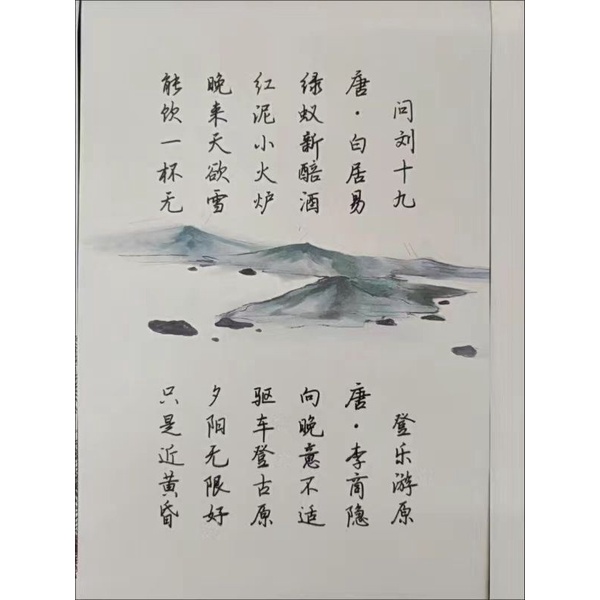 问刘十九
唐·白居易
绿蚁新醅酒
红泥小火炉
晚来天欲雪
能饮一杯无
登乐游原
唐·李商隐
向晚意不适
驱车登古原
夕阳无限好
只是近黄昏